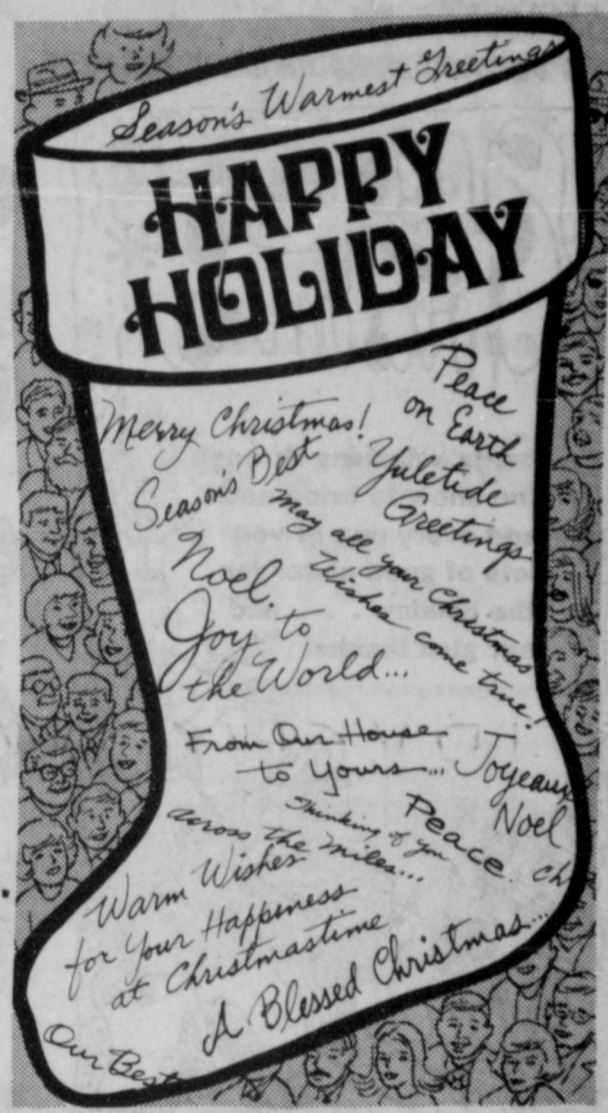 Season's Warmest Greetings
HAPPY
HOLIDAY
Peace
on Earth
Merry Christmas!
Season's Best
Yuletide
Greetings
May all your Christmas
Wishes come true!
Noel,
Joy to
the World...
From Our House
to Yours...
Joyeaux
Noel
Thinking of you
across the miles...
Peace.
Ch
Warm Wishes
for Your Happiness
at Christmastime
A Blessed Christmas...
Our Best